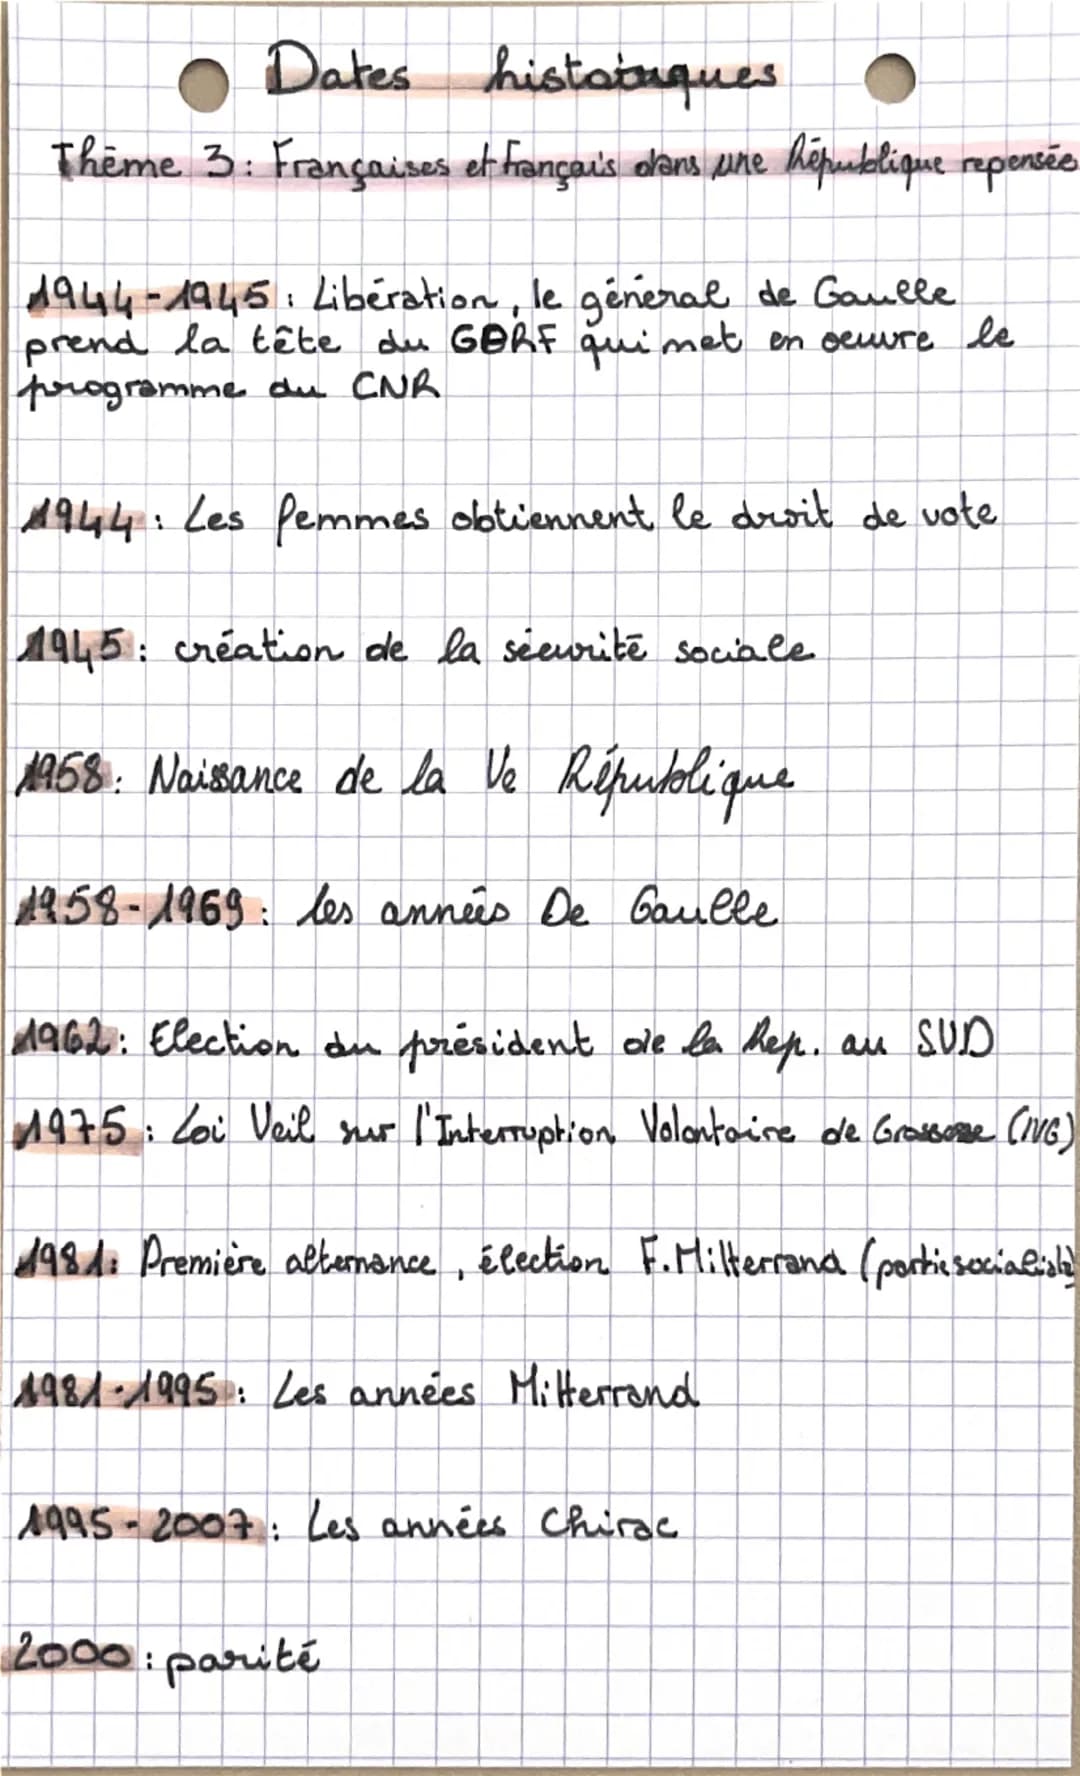 Dates historiques
Thème 3: Françaises et français dans une République repensée
1944-1945: Libération, le général de Gaulle
prend la tête du GPRF qui met en oeuvre le
programme du CNR
1944: Les femmes obtiennent le droit de vote
1945: création de la sécurité sociale
1958: Naissance de la Ve République
1958-1969: les années De Gaulle
1962: Election du président de la Rep. au SUD
1975: Loi Veil sur l'Interruption Volontaire de Grossesse (IVG)
1981: Première alternance, élection F. Mitterrand (partie socialiste)
1981-1995: Les années Mitterrand
1995-2007: Les années Chirac
2000: parité